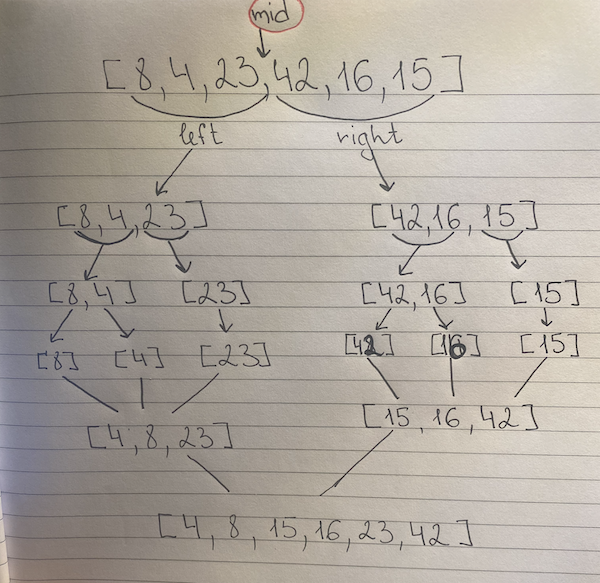 mid
[8,4,23,42,16,15]
left right
[8,4,23] [42,16,15]
[8,4] [23] [42,16] [15]
[8] [4] [23] [42] [16] [15]
[4,8,23] [15,16,42]
[4,8,15,16,23,42]